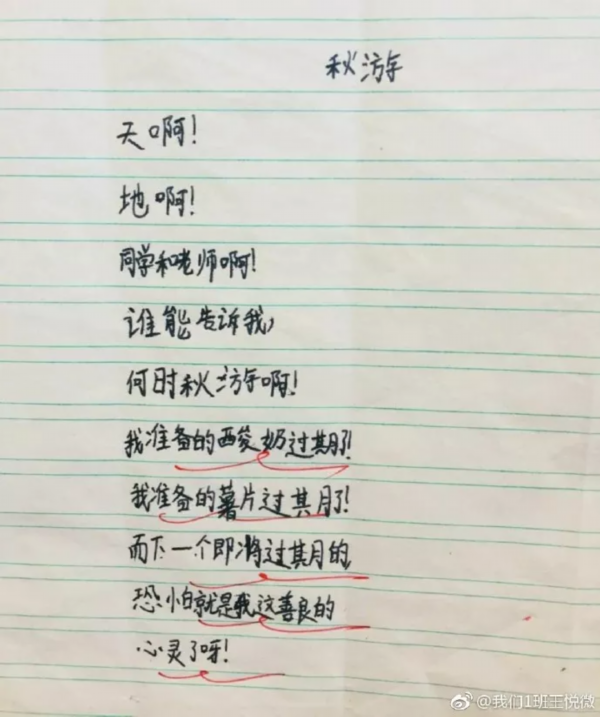 秋游
天啊!
地啊!
同学和老师啊!
谁能告诉我,
何时秋游啊!
我准备的酸奶过期了!
我准备的薯片过期了!
而下一个即将过期的,
恐怕就是我这善良的
心灵了呀!
@我们1班王悦微